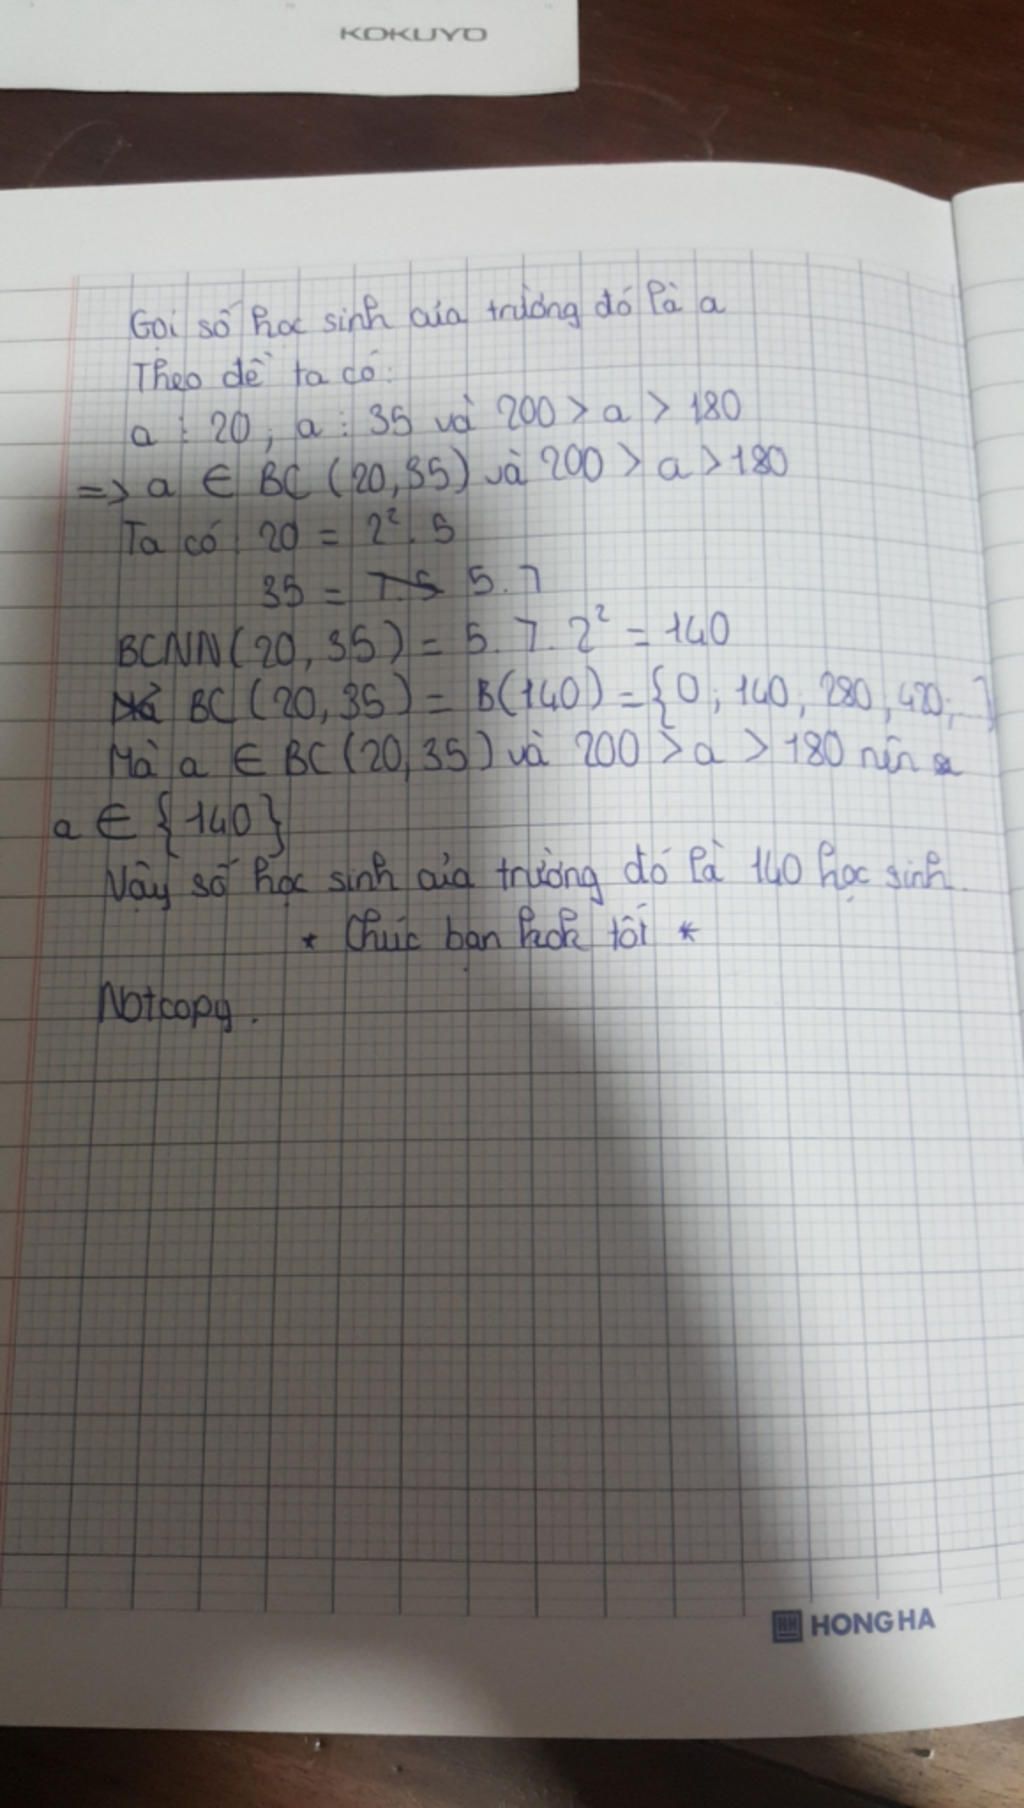 KOKUYO
Gọi số học sinh của trường đó là a
Theo đề ta có:
a ⋮ 20, a ⋮ 35 và 200 > a > 180
=> a ∈ BC (20,35) và 200 > a > 180
Ta có 20 = 2². 5
35 = 7.5 5.7
BCNN(20, 35) = 5. 7. 2² = 140
BC (20,35) = B(140) = {0; 140; 280, 420; }
Mà a ∈ BC (20,35) và 200 > a > 180 nên a
a ∈ {140}
Vậy số học sinh của trường đó là 140 học sinh.
* Chúc bạn học tốt *
Notcopy.
HH HONG HA